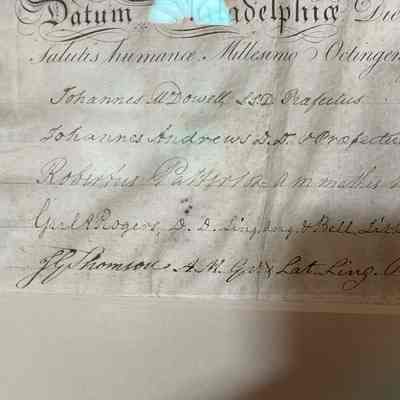 Datum adelphiæ Die
Salutis humanæ Millesimo Octingen
Johannes McDowell, S.S.D. Præfectus
Johannes Andrews D.D. Præfectu
Robertus Patterson A M mathis
Rogers, D. D. Ling. ang. & Bell. Litt
Thomson A.M. Gr. & Lat. Ling.